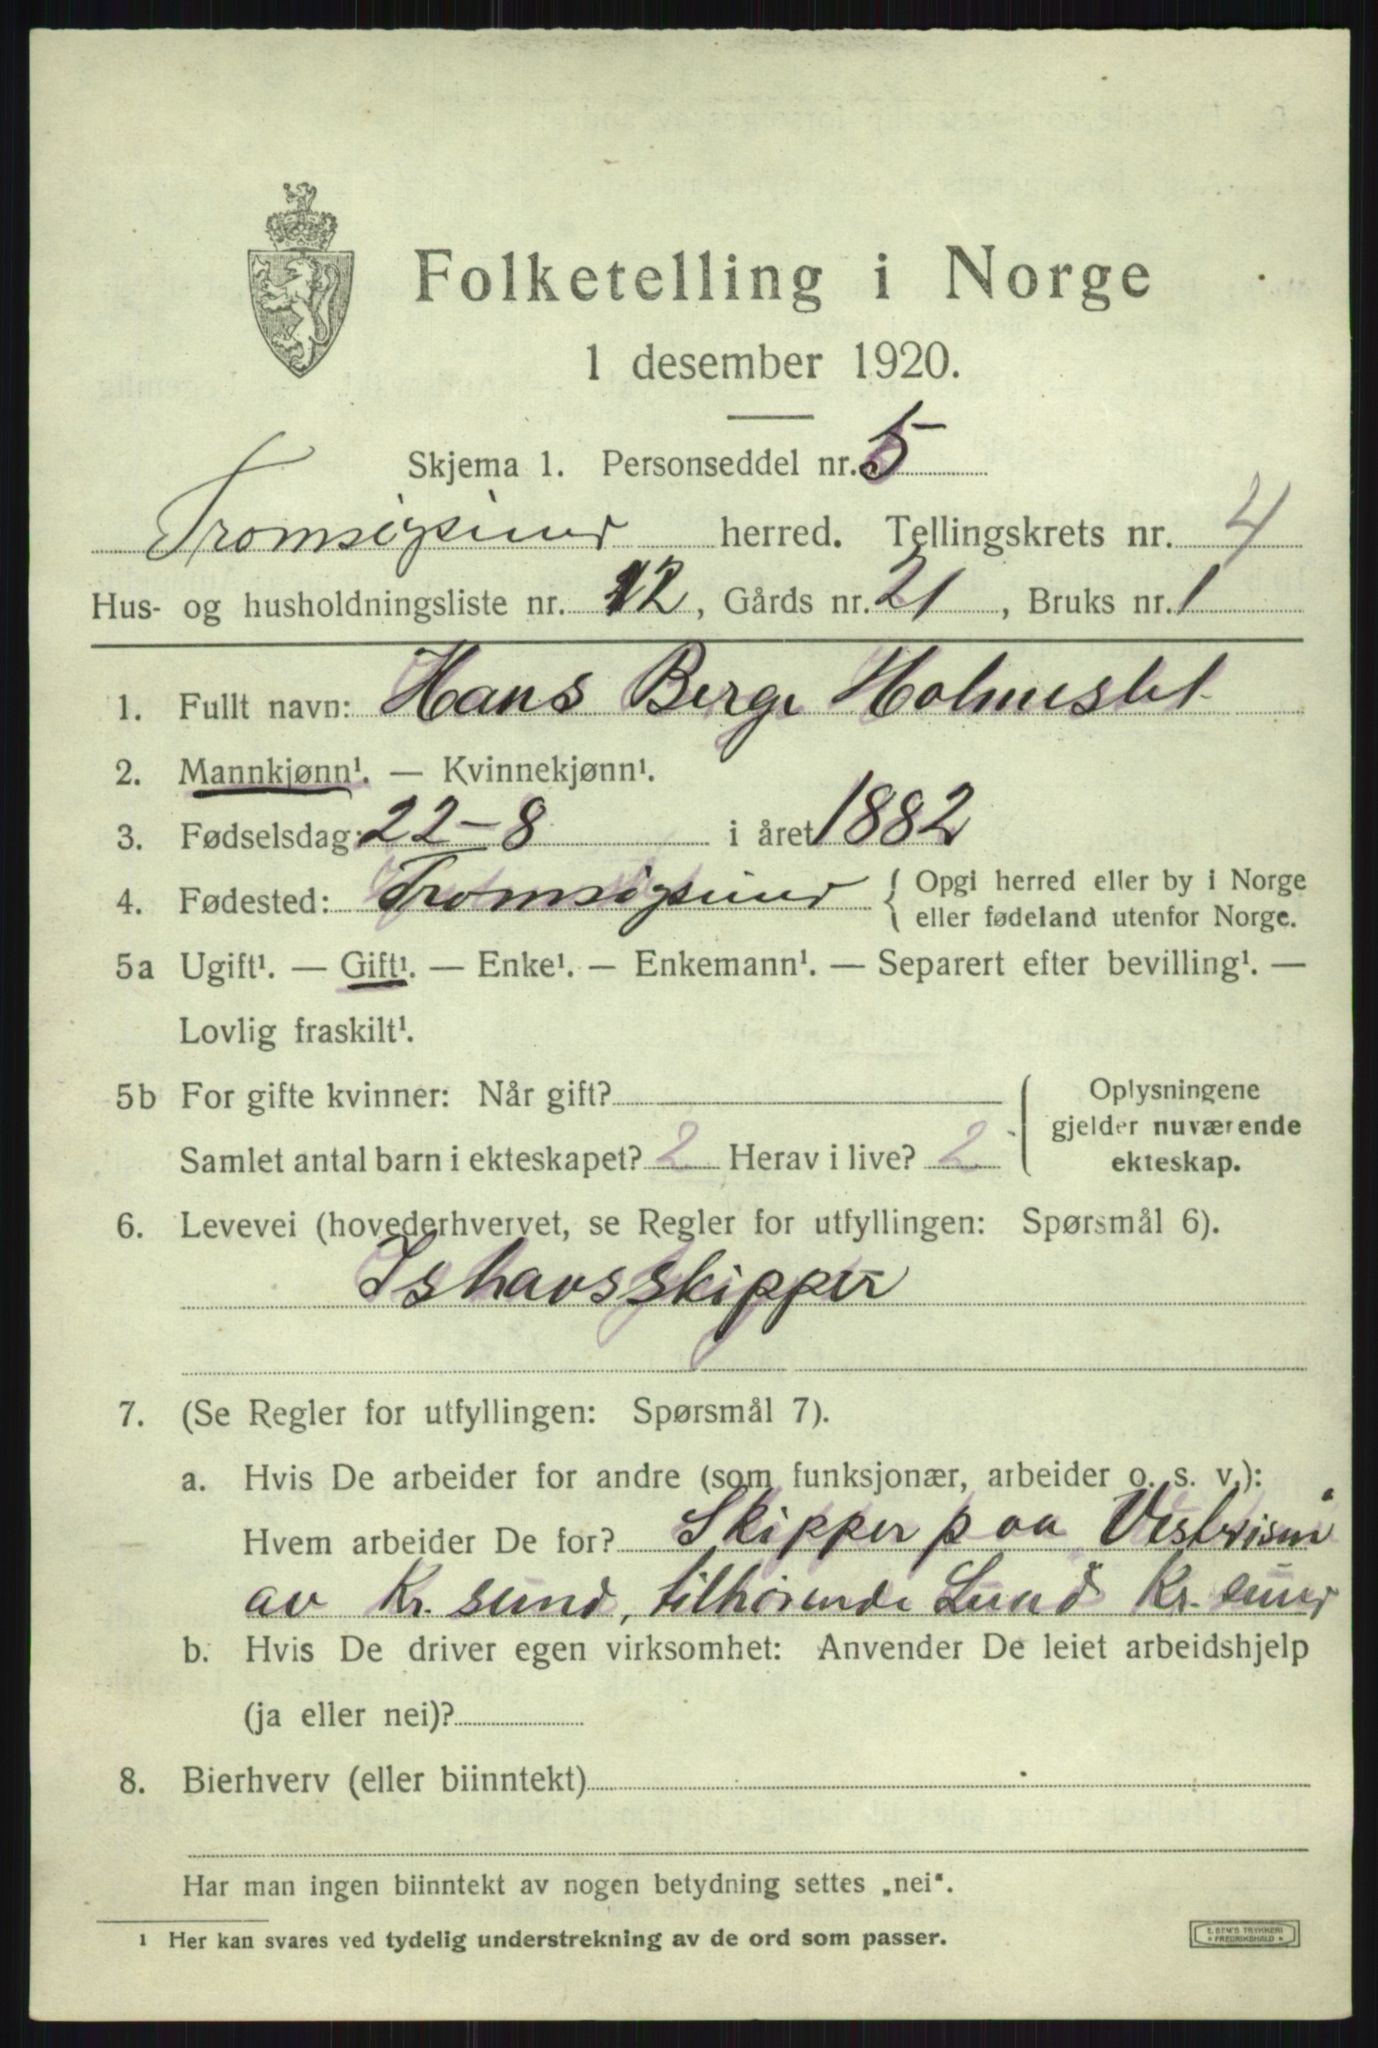 Folketelling i Norge
1 desember 1920.
Skjema 1. Personseddel nr. 5
Tromsøysund herred. Tellingskrets nr. 4
Hus- og husholdningsliste nr. 12, Gårds nr. 21, Bruks nr. 1
1. Fullt navn: Hans Berge Holmeslet
2. Mannkjønn¹. — Kvinnekjønn¹.
3. Fødselsdag: 22-8 i året 1882
4. Fødested: Tromsøysund { Opgi herred eller by i Norge
eller fødeland utenfor Norge.
5a Ugift¹. — Gift¹. — Enke¹. — Enkemann¹. — Separert efter bevilling¹. —
Lovlig fraskilt¹.
5b For gifte kvinner: Når gift?
Samlet antal barn i ekteskapet? 2 Herav i live? 2
{ Oplysningene
gjelder nuværende
ekteskap.
6. Levevei (hovederhvervet, se Regler for utfyllingen: Spørsmål 6).
Ishavsskipper
7. (Se Regler for utfyllingen: Spørsmål 7).
a. Hvis De arbeider for andre (som funksjonær, arbeider o. s. v.):
Hvem arbeider De for? Skipper paa
av Kr. sund, tilhørende Lund Kr. sund
b. Hvis De driver egen virksomhet: Anvender De leiet arbeidshjelp
(ja eller nei)?
8. Bierhverv (eller biinntekt)
Har man ingen biinntekt av nogen betydning settes „nei“.
¹ Her kan svares ved tydelig understrekning av de ord som passer.
E. SEM'S TRYKKERI
* FREDRIKSHALD *